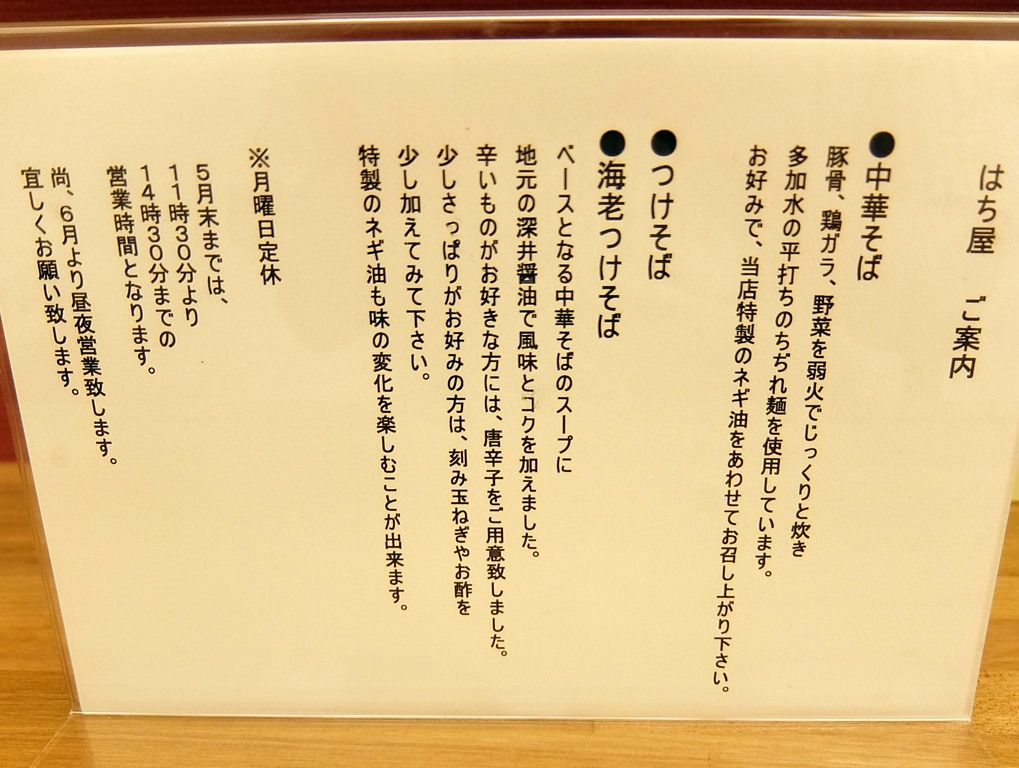 はち屋　ご案内
●中華そば
豚骨、鶏ガラ、野菜を弱火でじっくりと炊き
多加水の平打ちのちぢれ麺を使用しています。
お好みで、当店特製のネギ油をあわせてお召し上がり下さい。
●つけそば
●海老つけそば
ベースとなる中華そばのスープに
地元の深井醤油で風味とコクを加えました。
辛いものがお好きな方には、唐辛子をご用意致しました。
少しさっぱりがお好みの方は、刻み玉ねぎやお酢を
少し加えてみて下さい。
特製のネギ油も味の変化を楽しむことが出来ます。
※月曜日定休
5月末までは、
11時30分より
14時30分までの
営業時間となります。
尚、6月より昼夜営業致します。
宜しくお願い致します。